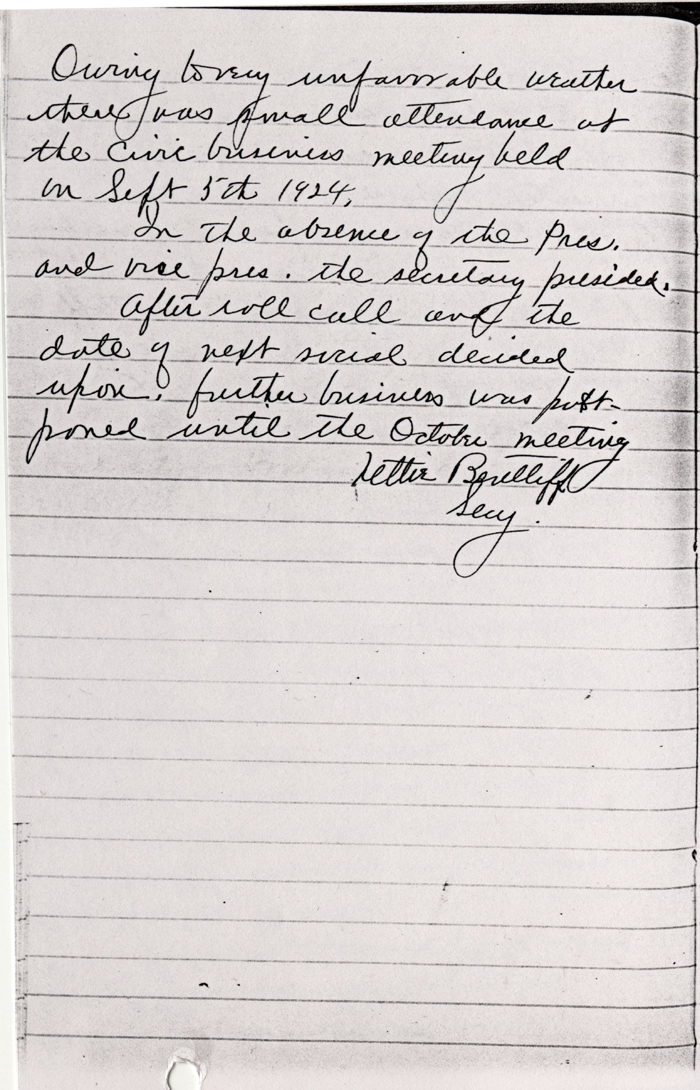 Owing to very unfavorable weather
there was small attendance at
the Civic business meeting held
on Sept 5th 1924.
In the absence of the Pres.
and vice pres. the secretary presided.
After roll call and the
date of next social decided
upon, further business was post-
poned until the October meeting
Lettie
Secy.